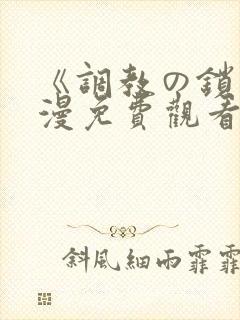 《調教の鎖
漫免費觀看
斜風細雨霏霏